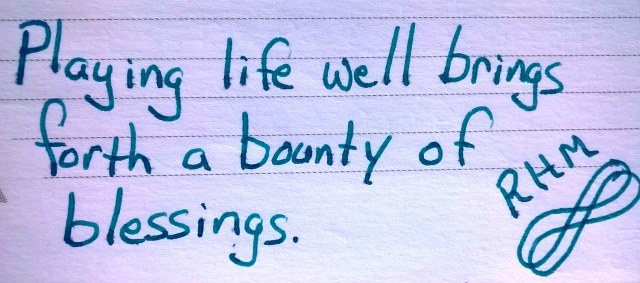 Playing life well brings
forth a bounty of
blessings.
RHM